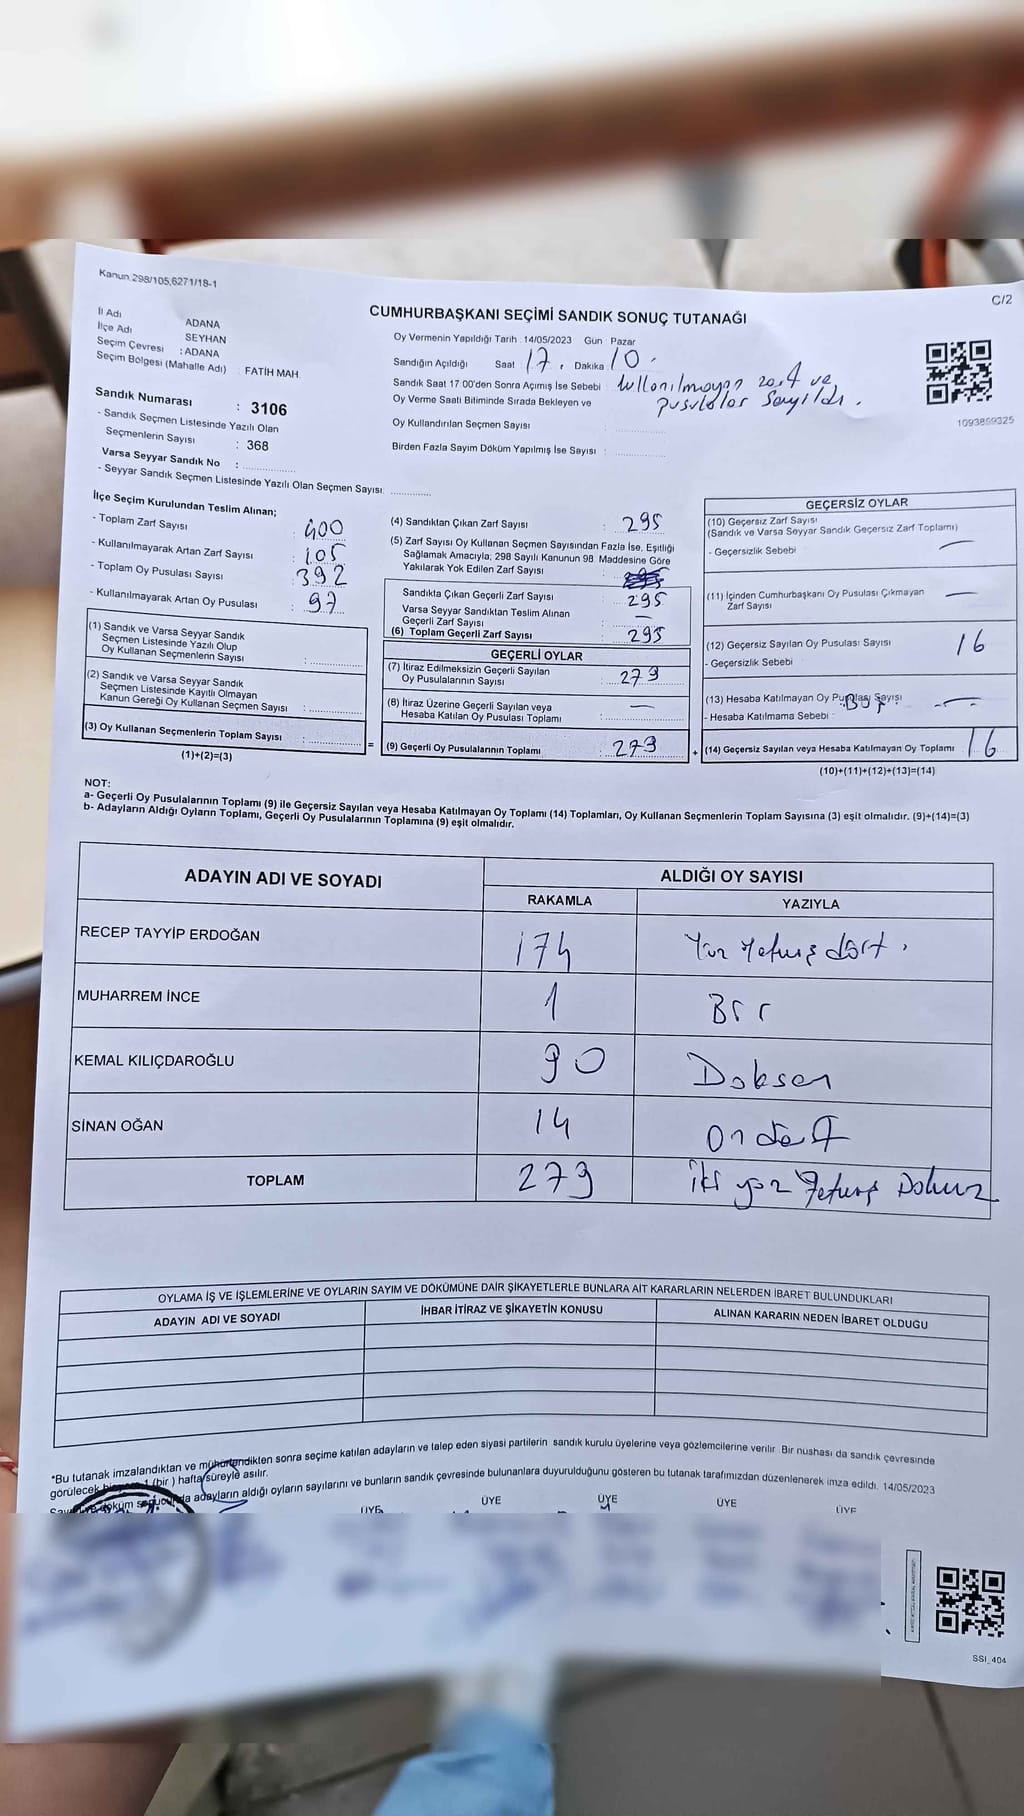 Kanun 298/105,6271/18-1
C/2
CUMHURBAŞKANI SEÇİMİ SANDIK SONUÇ TUTANAĞI
İl Adı ADANA
İlçe Adı SEYHAN
Seçim Çevresi : ADANA
Seçim Bölgesi (Mahalle Adı) : FATİH MAH.
Oy Vermenin Yapıldığı Tarih : 14/05/2023 Gün : Pazar
Sandığın Açıldığı Saat 17, Dakika 10.
Sandık Saat 17 00'den Sonra Açımış İse Sebebi : kullanılmayan zarf ve
pusulalar sayıldı.
Oy Verme Saati Bitiminde Sırada Bekleyen ve
Oy Kullandırılan Seçmen Sayısı :
Birden Fazla Sayım Döküm Yapılmış İse Sayısı :
1093869325
Sandık Numarası : 3106
- Sandık Seçmen Listesinde Yazılı Olan
Seçmenlerin Sayısı : 368
Varsa Seyyar Sandık No :
- Seyyar Sandık Seçmen Listesinde Yazılı Olan Seçmen Sayısı:
İlçe Seçim Kurulundan Teslim Alınan;
- Toplam Zarf Sayısı : 400
- Kullanılmayarak Artan Zarf Sayısı : 105
- Toplam Oy Pusulası Sayısı : 392
- Kullanılmayarak Artan Oy Pusulası : 97
(1) Sandık ve Varsa Seyyar Sandık
Seçmen Listesinde Yazılı Olup
Oy Kullanan Seçmenlerin Sayısı :
(2) Sandık ve Varsa Seyyar Sandık
Seçmen Listesinde Kayıtlı Olmayan
Kanun Gereği Oy Kullanan Seçmen Sayısı :
(3) Oy Kullanan Seçmenlerin Toplam Sayısı :
(1)+(2)=(3)
(4) Sandıktan Çıkan Zarf Sayısı : 295
(5) Zarf Sayısı Oy Kullanan Seçmen Sayısından Fazla İse, Eşitliği
Sağlamak Amacıyla; 298 Sayılı Kanunun 98. Maddesine Göre
Yakılarak Yok Edilen Zarf Sayısı :
Sandıkta Çıkan Geçerli Zarf Sayısı : 295
Varsa Seyyar Sandıktan Teslim Alınan
Geçerli Zarf Sayısı : —
(6) Toplam Geçerli Zarf Sayısı : 295
GEÇERLİ OYLAR
(7) İtiraz Edilmeksizin Geçerli Sayılan
Oy Pusulalarının Sayısı : 279
(8) İtiraz Üzerine Geçerli Sayılan veya
Hesaba Katılan Oy Pusulası Toplamı : —
= (9) Geçerli Oy Pusulalarının Toplamı : 279
GEÇERSİZ OYLAR
(10) Geçersiz Zarf Sayısı
(Sandık ve Varsa Seyyar Sandık Geçersiz Zarf Toplamı)
- Geçersizlik Sebebi : —
(11) İçinden Cumhurbaşkanı Oy Pusulası Çıkmayan
Zarf Sayısı —
(12) Geçersiz Sayılan Oy Pusulası Sayısı 16
- Geçersizlik Sebebi :
(13) Hesaba Katılmayan Oy Pusulası Sayısı —
- Hesaba Katılmama Sebebi : Boş
+ (14) Geçersiz Sayılan veya Hesaba Katılmayan Oy Toplamı 16
(10)+(11)+(12)+(13)=(14)
NOT:
a- Geçerli Oy Pusulalarının Toplamı (9) ile Geçersiz Sayılan veya Hesaba Katılmayan Oy Toplamı (14) Toplamları, Oy Kullanan Seçmenlerin Toplam Sayısına (3) eşit olmalıdır. (9)+(14)=(3)
b- Adayların Aldığı Oyların Toplamı, Geçerli Oy Pusulalarının Toplamına (9) eşit olmalıdır.
ADAYIN ADI VE SOYADI ALDIĞI OY SAYISI
RAKAMLA YAZIYLA
RECEP TAYYİP ERDOĞAN 174 Yüz Yetmiş dört.
MUHARREM İNCE 1 Bir
KEMAL KILIÇDAROĞLU 90 Doksan
SİNAN OĞAN 14 On dört
TOPLAM 279 iki yüz Yetmiş Dokuz
OYLAMA İŞ VE İŞLEMLERİNE VE OYLARIN SAYIM VE DÖKÜMÜNE DAİR ŞİKAYETLERLE BUNLARA AİT KARARLARIN NELERDEN İBARET BULUNDUKLARI
ADAYIN ADI VE SOYADI İHBAR İTİRAZ VE ŞİKAYETİN KONUSU ALINAN KARARIN NEDEN İBARET OLDUĞU
*Bu tutanak imzalandıktan ve mühürlendikten sonra seçime katılan adayların ve talep eden siyasi partilerin sandık kurulu üyelerine veya gözlemcilerine verilir. Bir nüshası da sandık çevresinde
görülecek 1 (bir) hafta süreyle asılır.
döküm sonucunda adayların aldığı oyların sayılarını ve bunların sandık çevresinde bulunanlara duyurulduğunu gösteren bu tutanak tarafımızdan düzenlenerek imza edildi. 14/05/2023
ÜYE ÜYE ÜYE ÜYE ÜYE
SSI_404